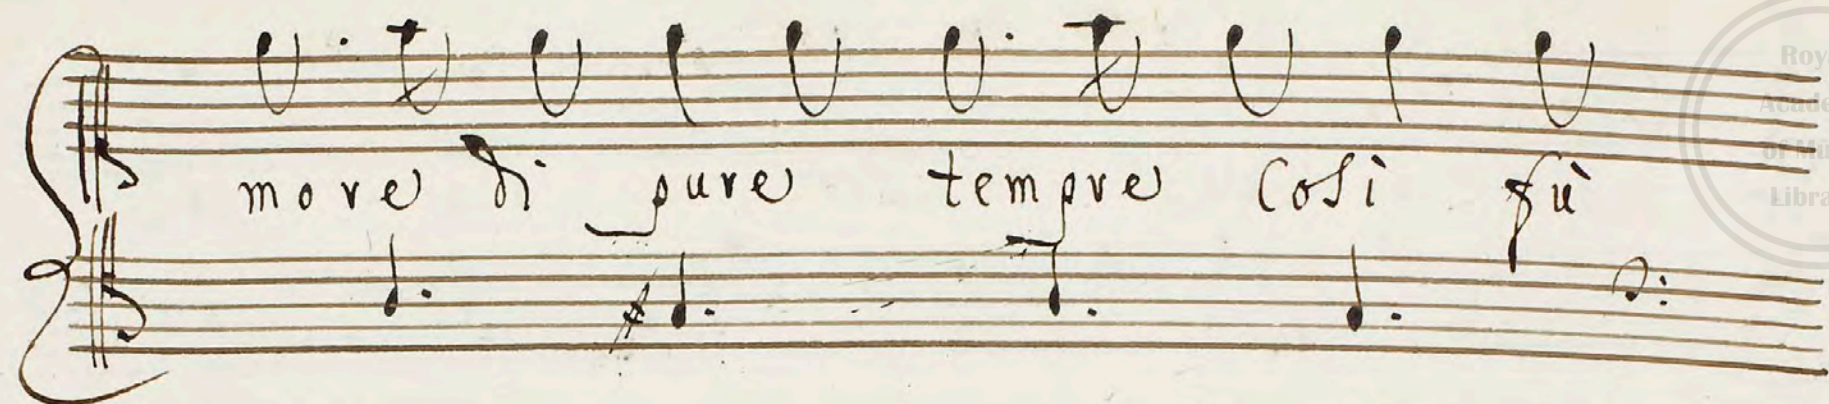 more di pure tempre Così fù